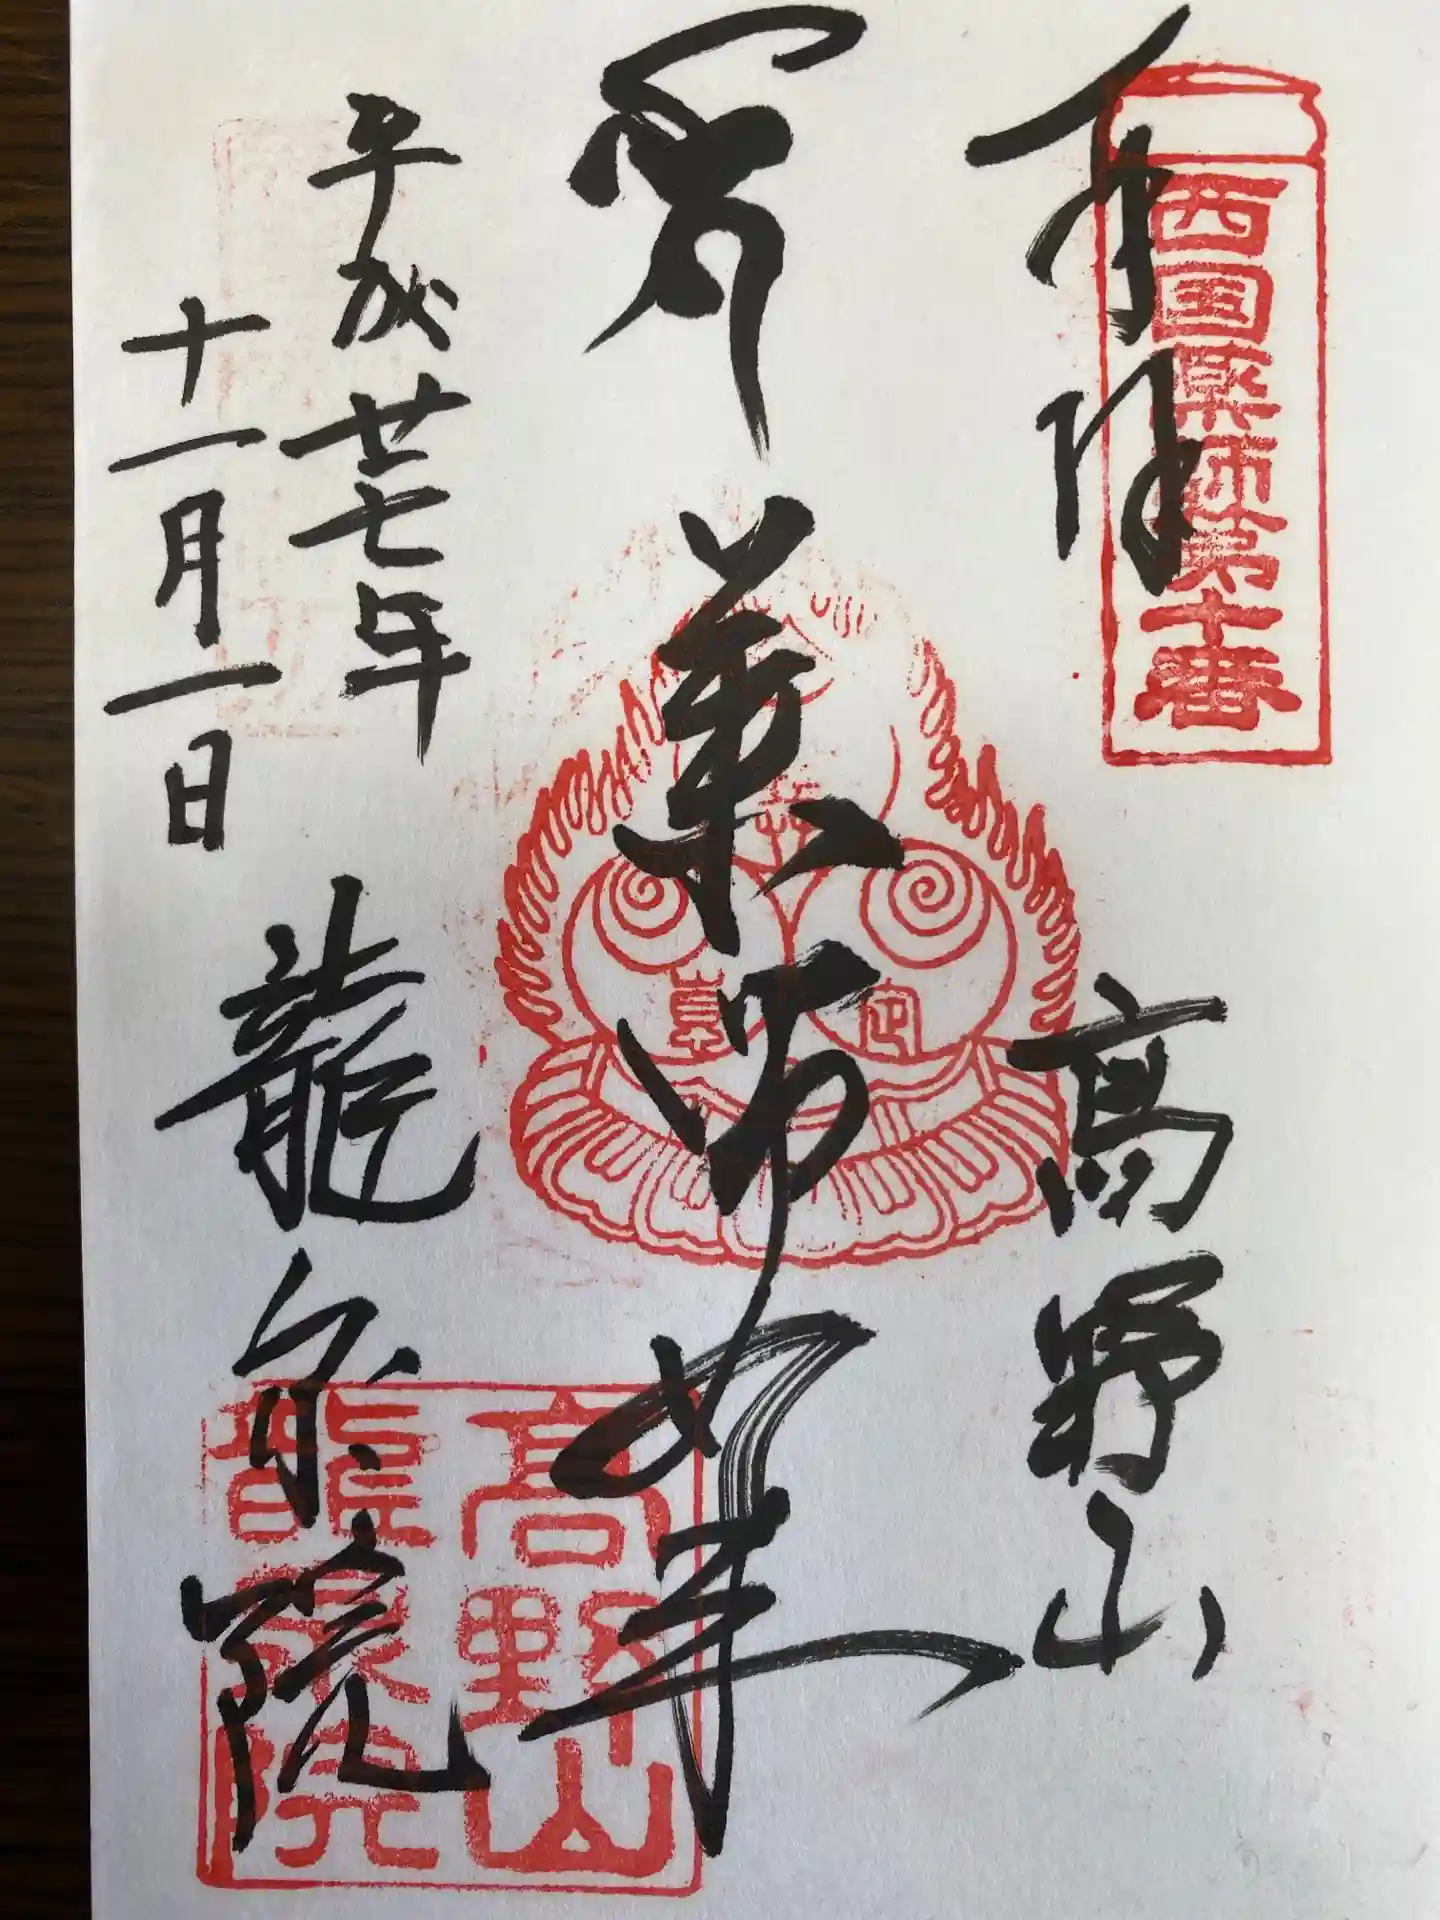 奉拝
西国薬師第十番
高野山
薬師如来
平成廿七年
十一月一日
龍泉院
高野山
龍泉院